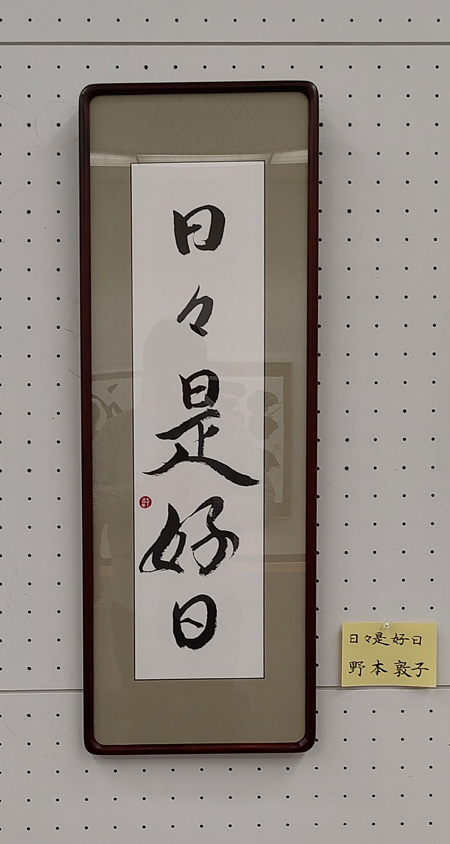 日々是好日
日々是好日
野本敦子